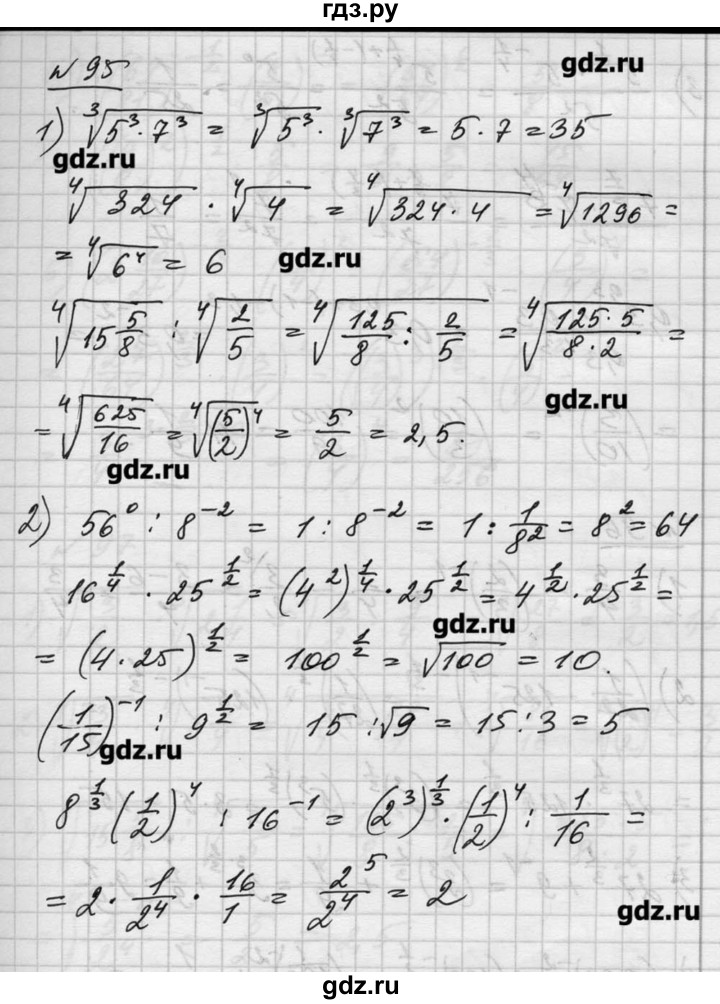 гдз.ру
№95
gdz.ru
1) ∛(5³·7³) = ∛5³ · ∛7³ = 5·7 = 35
gdz.ru
∜324 · ∜4 = ∜(324·4) = ∜1296 =
= ∜6⁴ = 6
gdz.ru
∜(15 5/8) : ∜(2/5) = ∜(125/8 : 2/5) = ∜((125·5)/(8·2)) =
gdz.ru
= ∜(625/16) = ∜((5/2)⁴) = 5/2 = 2,5.
gdz.ru
2) 56⁰ : 8⁻² = 1 : 8⁻² = 1 : 1/8² = 8² = 64
16^(1/4) · 25^(1/2) = (4²)^(1/4) · 25^(1/2) = 4^(1/2) · 25^(1/2) =
gdz.ru
= (4·25)^(1/2) = 100^(1/2) = √100 = 10.
(1/15)⁻¹ : 9^(1/2) = 15 : √9 = 15 : 3 = 5
gdz.ru
8^(1/3) (1/2)⁴ : 16⁻¹ = (2³)^(1/3) · (1/2)⁴ : 1/16 =
= 2 · 1/2⁴ · 16/1 = 2⁵/2⁴ = 2
gdz.ru
gdz.ru